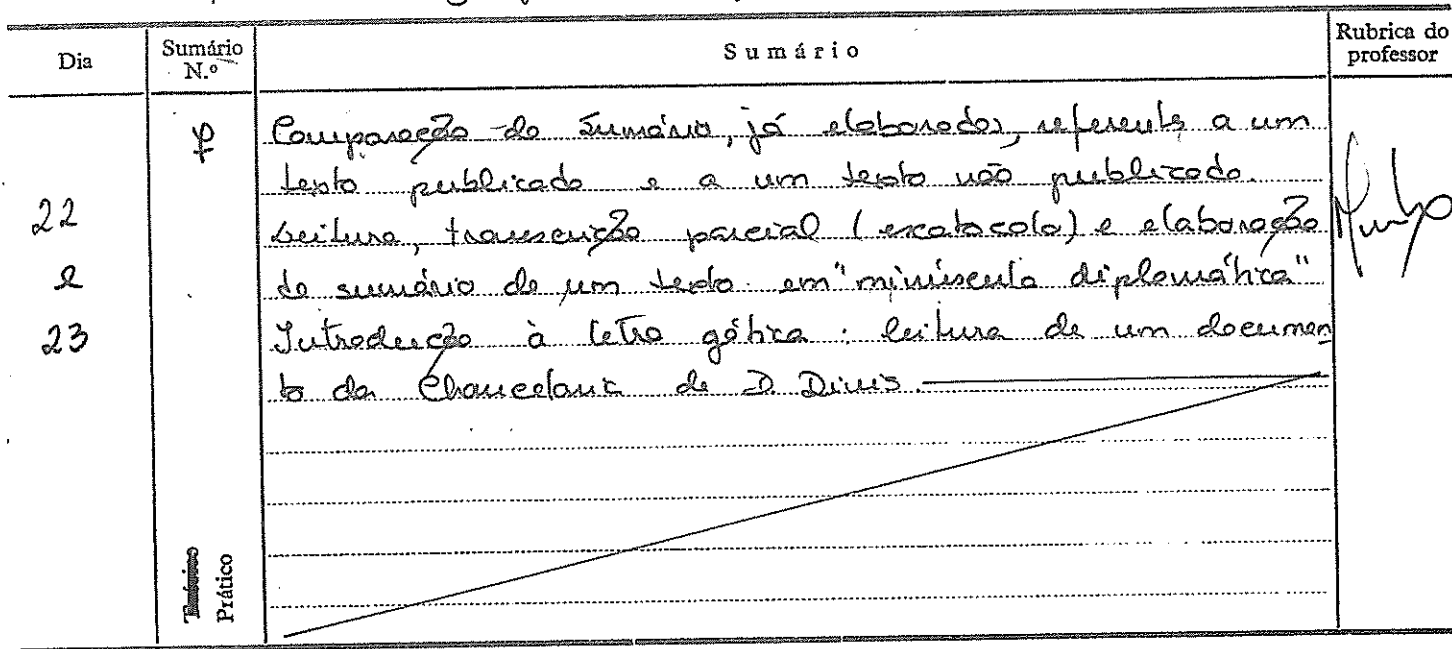 Dia
Sumário N.º
Sumário
Rubrica do professor
22 e 23
Comparação do sumário, já elaborados, referente a um
texto publicado e a um texto não publicado.
Leitura, transcrição parcial (escatocolo) e elaboração
do sumário de um texto em "minúscula diplomática"
Introdução à letra gótica: leitura de um documen
to da Chancelaria de D. Dinis.
Prático